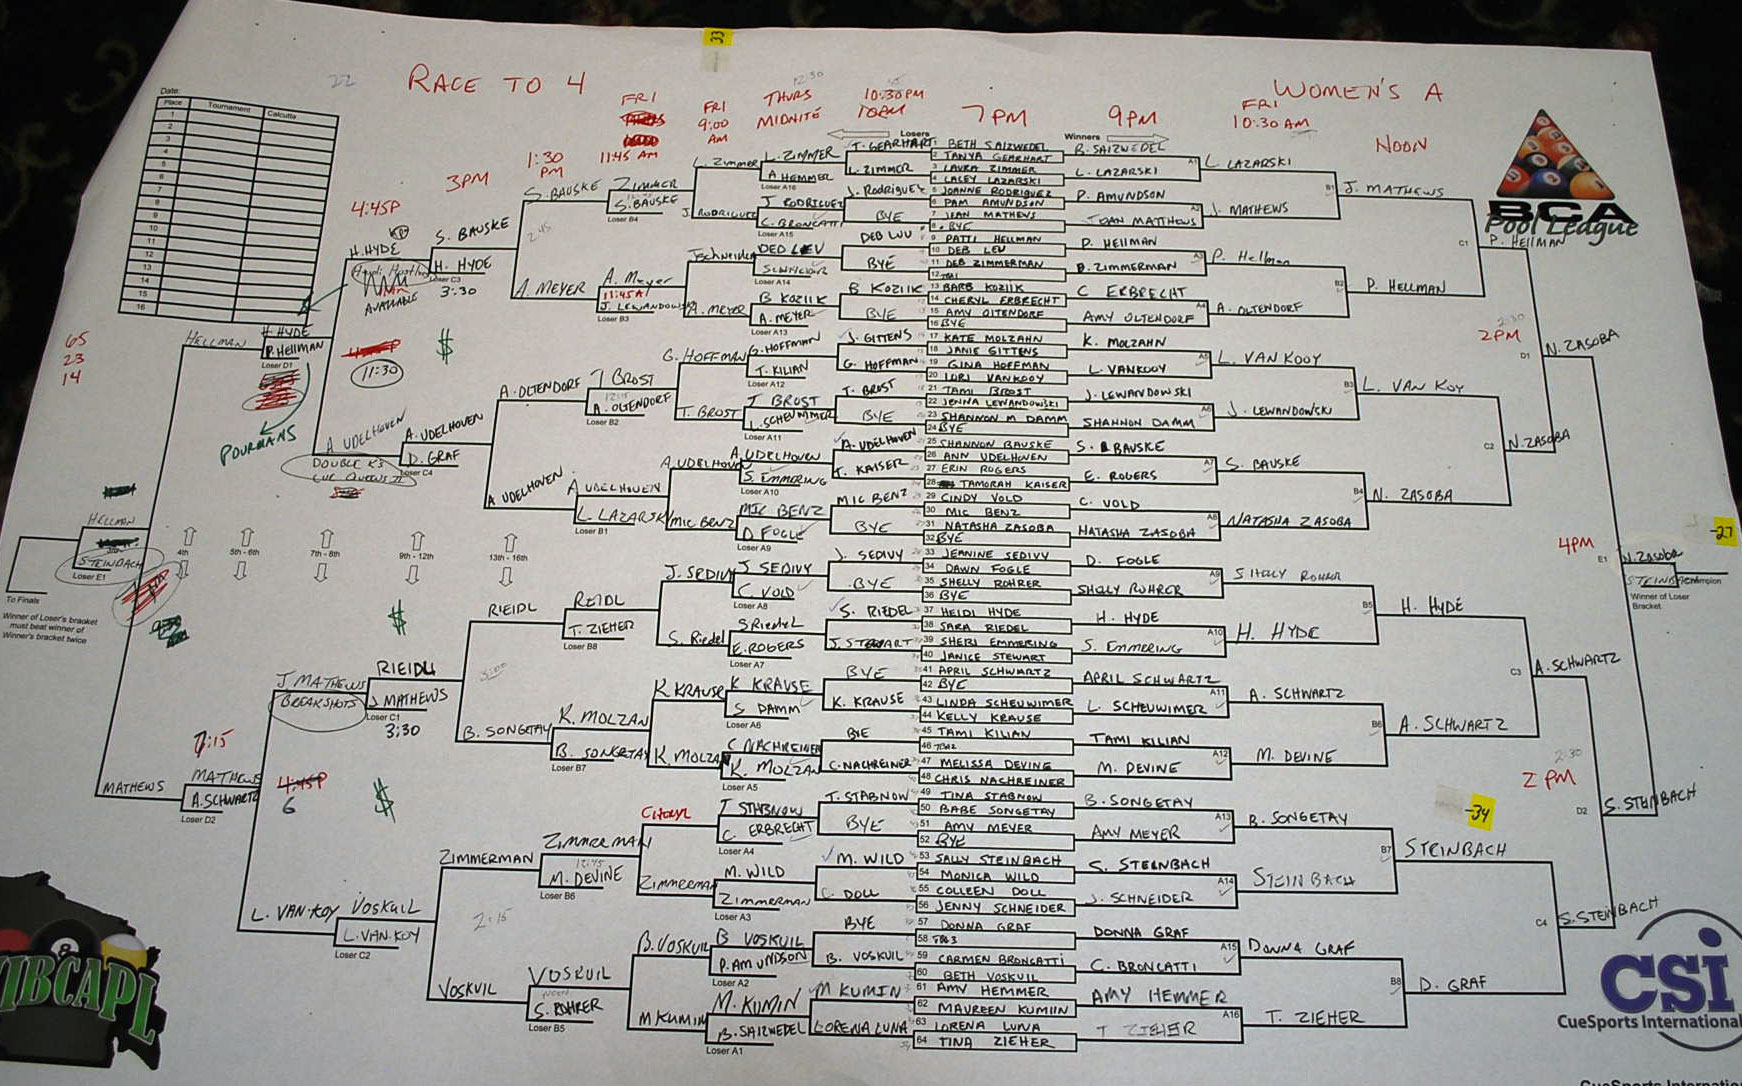 33
22
RACE TO 4
WOMEN'S A
Date:
Place Tournament Calcutta
1
2
3
4
5
6
7
8
9
10
11
12
13
14
15
16
FRI
11:45 AM
FRI
9:00
AM
THURS
MIDNITE
12:30
10:30PM
7PM
9PM
FRI
10:30 AM
NOON
1:30
PM
3PM
4:45P
Losers
Winners
BCA
Pool League
1 BETH SAIZWEDEL
2 TANYA GEARHART
3 LAURA ZIMMER
4 LACEY LAZARSKI
5 JOANNE RODRIGUEZ
6 PAM AMUNDSON
7 JEAN MATHEWS
8 BYE
9 PATTI HELLMAN
10 DEB LEU
11 DEB ZIMMERMAN
12 TBA1
13 BARB KOZIIK
14 CHERYL ERBRECHT
15 AMY OLTENDORF
16 BYE
17 KATE MOLZAHN
18 JANIE GITTENS
19 GINA HOFFMAN
20 LORI VANKOOY
21 TAMI BROST
22 JENNA LEWANDOWSKI
23 SHANNON M DAMM
24 BYE
25 SHANNON BAUSKE
26 ANN UDELHOVEN
27 ERIN ROGERS
28 TAMORAH KAISER
29 CINDY VOLD
30 MIC BENZ
31 NATASHA ZASOBA
32 BYE
33 JEANINE SEDIVY
34 DAWN FOGLE
35 SHELLY ROHRER
36 BYE
37 HEIDI HYDE
38 SARA RIEDEL
39 SHERI EMMERING
40 JANICE STEWART
41 APRIL SCHWARTZ
42 BYE
43 LINDA SCHEUWIMER
44 KELLY KRAUSE
45 TAMI KILIAN
46 TBA2
47 MELISSA DEVINE
48 CHRIS NACHREINER
49 TINA STABNOW
50 BABE SONGETAY
51 AMY MEYER
52 BYE
53 SALLY STEINBACH
54 MONICA WILD
55 COLLEEN DOLL
56 JENNY SCHNEIDER
57 DONNA GRAF
58 TBA3
59 CARMEN BRONCATTI
60 BETH VOSKUIL
61 AMY HEMMER
62 MAUREEN KUMIIN
63 LORENA LUNA
64 TINA ZIEHER
B. SAIZWEDEL
L. LAZARSKI
P. AMUNDSON
JOAN MATTHEWS
P. HELLMAN
D. ZIMMERMAN
C ERBRECHT
AMY OLTENDORF
K. MOLZAHN
L. VANKOOY
J. LEWANDOWSKI
SHANNON DAMM
S. BAUSKE
E. ROGERS
C. VOLD
NATASHA ZASOBA
D. FOGLE
SHELLY ROHRER
H. HYDE
S. EMMERING
APRIL SCHWARTZ
L. SCHEUWIMER
TAMI KILIAN
M. DEVINE
B. SONGETAY
AMY MEYER
S. STEINBACH
J. SCHNEIDER
DONNA GRAF
C. BRONCATTI
AMY HEMMER
T ZIEHER
A1
A2
A3
A4
A5
A6
A7
A8
A9
A10
A11
A12
A13
A14
A15
A16
L LAZARSKI
J. MATHEWS
P. Hellman
A. OLTENDORF
L. VAN KOOY
J. LEWANDOWSKI
S. BAUSKE
NATASHA ZASOBA
SHELLY ROHRER
H. HYDE
A. SCHWARTZ
M. DEVINE
B. SONGETAY
STEINBACH
DONNA GRAF
T. ZIEHER
B1
B2
B3
B4
B5
B6
B7
B8
J. MATHEWS
P. HELLMAN
L. VAN KOY
N. ZASOBA
H. HYDE
A. SCHWARTZ
STEINBACH
D. GRAF
C1
C2
C3
C4
P. HELLMAN
N. ZASOBA
A. SCHWARTZ
S. STEINBACH
2:30
2PM
2:30
2 PM
D1
D2
N. ZASOBA
S. STEINBACH
4PM
E1
N. ZASOBA
STEINB
Champion
Winner of Loser
Bracket
-27
-34
T. GEARHART
L. ZIMMER
J. RODRIGUEZ
BYE
DEB LUU
BYE
B KOZIIK
BYE
J. GITTENS
G. HOFFMAN
T. BROST
BYE
A. UDELHOVEN
T. KAISER
MIC BENZ
BYE
J. SEDIVY
BYE
S. RIEDEL
J. STEWART
BYE
K. KRAUSE
BYE
C. NACHREINER
T. STABNOW
BYE
M. WILD
C. DOLL
BYE
B. VOSKUIL
M KUMIN
LORENA LUNA
L. ZIMMER
A. HEMMER
Loser A16
J RODRIGUEZ
C. BRONCATTI
Loser A15
DEB LEV
SCHNEIDER
Loser A14
B KOZIIK
A. MEYER
Loser A13
G. HOFFMAN
T. KILIAN
Loser A12
T BROST
L. SCHEUWIMMER
Loser A11
A. UDELHOVEN
S. EMMERING
Loser A10
MIC BENZ
D FOGLE
Loser A9
J SEDIVY
C. VOLD
Loser A8
S RIEDEL
E. ROGERS
Loser A7
K KRAUSE
S DAMM
Loser A6
C NACHREINER
K. MOLZAN
Loser A5
T STABNOW
C. ERBRECHT
Loser A4
M. WILD
ZIMMERMAN
Loser A3
B VOSKUIL
P. AMUNDSON
Loser A2
M. KUMIN
B. SAIZWEDEL
Loser A1
L. Zimmer
J. RODRIGUEZ
J Schneider
A. MEYER
G. HOFFMAN
T. BROST
A. UDELHOVEN
MIC BENZ
J. SEDIVY
S. Riedel
K KRAUSE
K. MOLZAN
Cheryl
Zimmerman
B. VOSKUIL
M KUMIN
ZIMMER
S. BAUSKE
Loser B4
A. Meyer
11:45 A
J. LEWANDOWSKI
Loser B3
T BROST
12:15
A. OLTENDORF
Loser B2
A UDELHOVEN
L. LAZARSKI
Loser B1
REIDL
T. ZIEHER
Loser B8
K. MOLZAN
B. SONGETAY
Loser B7
ZIMMERMAN
12:45
M. DEVINE
Loser B6
VOSKUIL
NOON
S. ROHRER
Loser B5
S. BAUSKE
2:45
A. MEYER
A. OLTENDORF
A UDELHOVEN
RIEIDL
3:00
B. SONGETAY
ZIMMERMAN
2:15
VOSKUIL
S. BAUSKE
H. HYDE
Loser C3
3:30
A. UDELHOVEN
D. GRAF
Loser C4
RIEIDL
J MATHEWS
Loser C1
3:30
VOSKUIL
L. VAN-KOY
Loser C2
H. HYDE
AVAILABLE
$
11:30
A UDELHOVEN
DOUBLE K'S
CUE QUEENS II
J. MATHEWS
BREAKSHOTS
4:45P
6
$
$
L. VAN-KOY
H. HYDE
P. HELLMAN
Loser D1
POURMANS
7:15
MATHEWS
A. SCHWARTZ
Loser D2
HELLMAN
MATHEWS
65
23
14
4th
5th - 6th
7th - 8th
9th - 12th
13th - 16th
HELLMAN
3rd
STEINBACH
Loser E1
To Finals
Winner of Loser's bracket
must beat winner of
Winner's bracket twice
WIBCAPL
8
CSI
CueSports International
CueSports Internationa